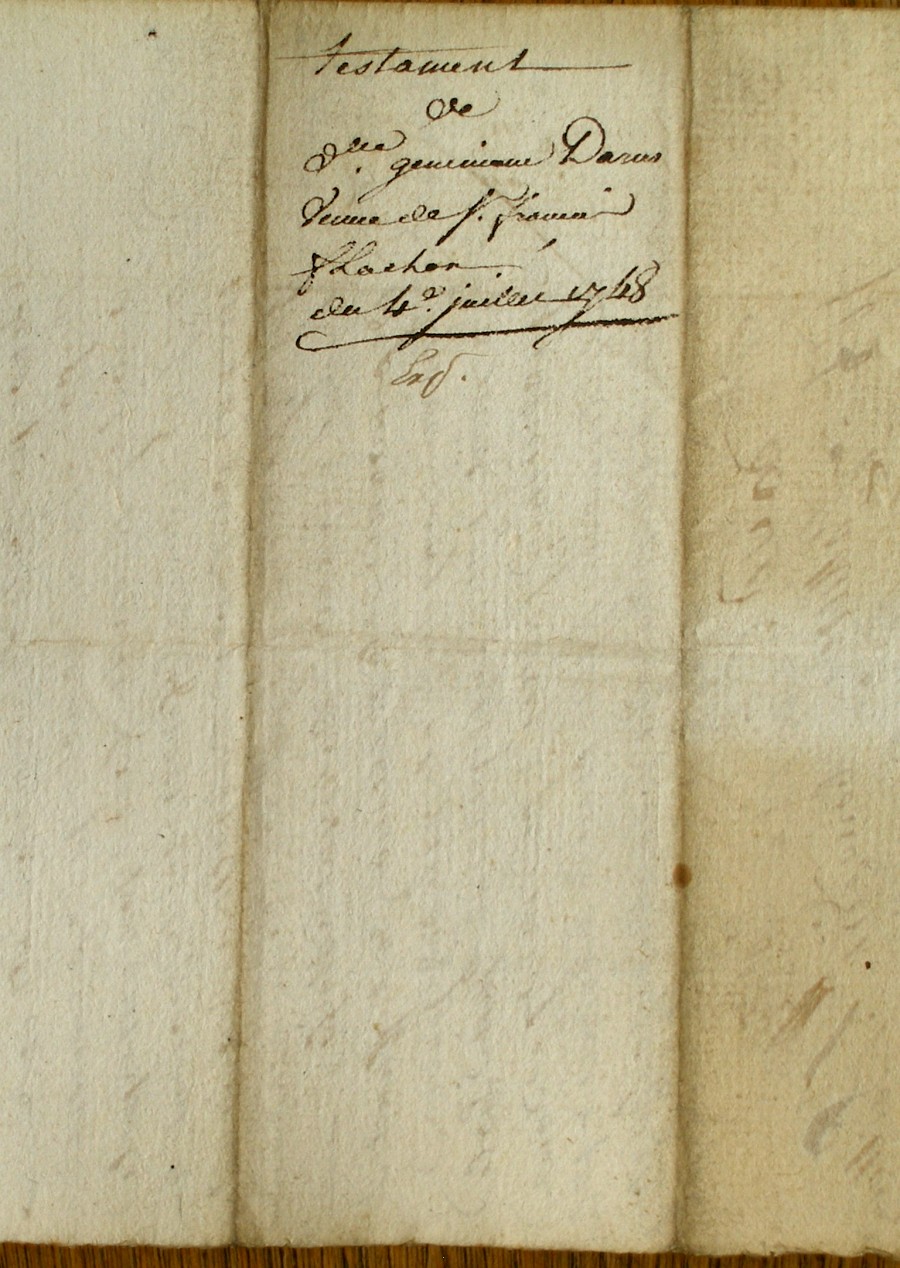 Testament
de
dlle. genevieve Darus
Veuve de Sr. francois
flachon
du 4e. juillet 1748
Exp.